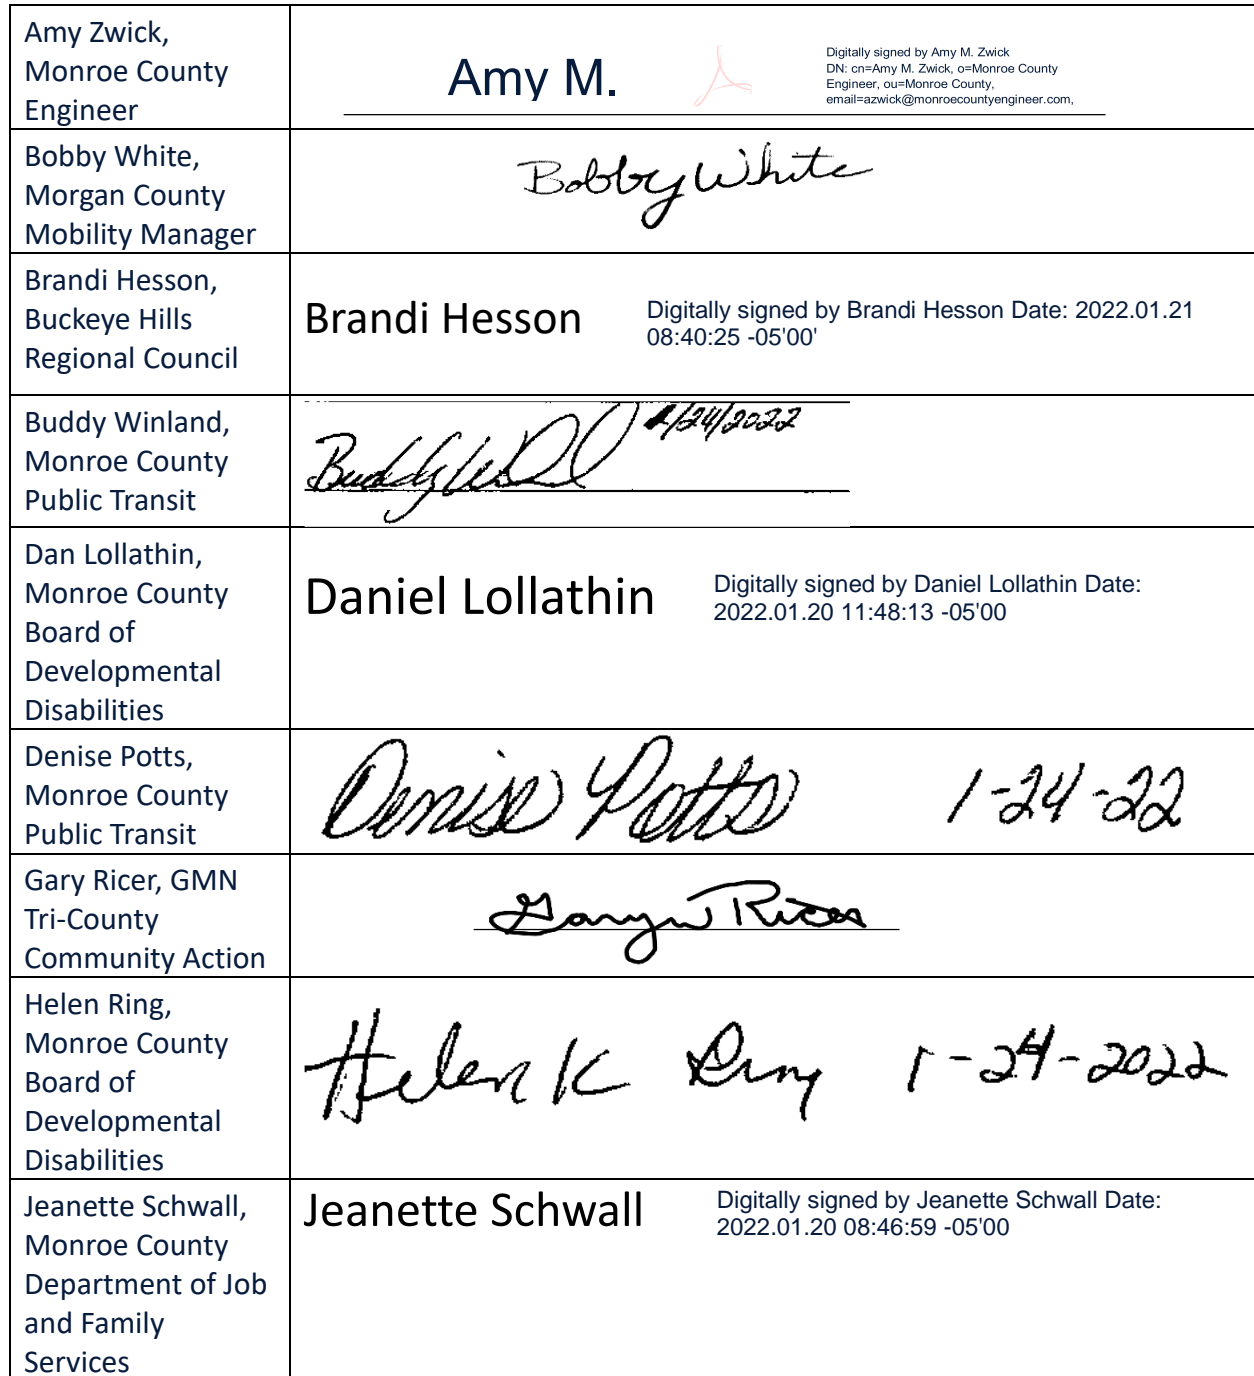 Amy Zwick,
Monroe County
Engineer
Amy M.
Digitally signed by Amy M. Zwick
DN: cn=Amy M. Zwick, o=Monroe County
Engineer, ou=Monroe County,
email=azwick@monroecountyengineer.com,
Bobby White,
Morgan County
Mobility Manager
Bobby White
Brandi Hesson,
Buckeye Hills
Regional Council
Brandi Hesson
Digitally signed by Brandi Hesson Date: 2022.01.21
08:40:25 -05'00'
Buddy Winland,
Monroe County
Public Transit
Buddy 1/24/2022
Dan Lollathin,
Monroe County
Board of
Developmental
Disabilities
Daniel Lollathin
Digitally signed by Daniel Lollathin Date:
2022.01.20 11:48:13 -05'00
Denise Potts,
Monroe County
Public Transit
Denise Potts 1-24-22
Gary Ricer, GMN
Tri-County
Community Action
Gary W Ricer
Helen Ring,
Monroe County
Board of
Developmental
Disabilities
Helen K Ring 1-24-2022
Jeanette Schwall,
Monroe County
Department of Job
and Family
Services
Jeanette Schwall
Digitally signed by Jeanette Schwall Date:
2022.01.20 08:46:59 -05'00